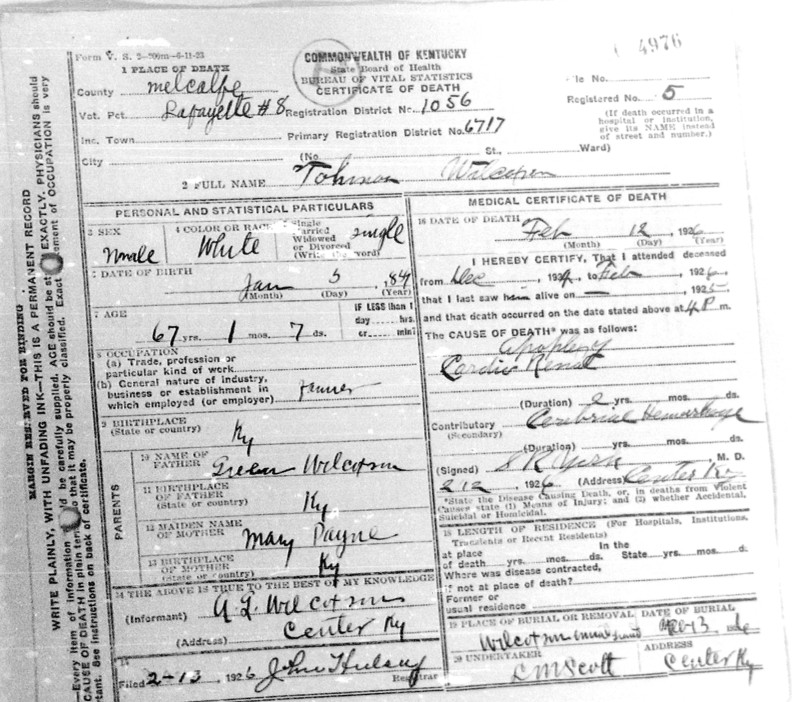 Form V. S. 2-200m-6-11-23
COMMONWEALTH OF KENTUCKY
State Board of Health
BUREAU OF VITAL STATISTICS
CERTIFICATE OF DEATH
4976
1 PLACE OF DEATH
County Metcalfe
Vot. Pct. Lafayette #8
Inc. Town
City
Registration District No. 1056
Primary Registration District No. 6717
(No. St., Ward)
le No.
Registered No. 5
(If death occurred in a
hospital or institution,
give its NAME instead
of street and number.)
2 FULL NAME Tohmon Wilcoxson
PERSONAL AND STATISTICAL PARTICULARS
3 SEX
male
4 COLOR OR RACE
White
Single
Married
Widowed
or Divorced
(Write the word)
single
DATE OF BIRTH
Jan 5, 184
(Month) (Day) (Year)
7 AGE
67 yrs. 1 mos. 7 ds.
IF LESS than 1
day hrs.
or min?
8 OCCUPATION
(a) Trade, profession or
particular kind of work
(b) General nature of industry,
business or establishment in
which employed (or employer) Farmer
9 BIRTHPLACE
(State or country) Ky
PARENTS
10 NAME OF
FATHER Green Wilcoxson
11 BIRTHPLACE
OF FATHER
(State or country) Ky.
12 MAIDEN NAME
OF MOTHER Mary Payne
13 BIRTHPLACE
OF MOTHER
(State or country) Ky
14 THE ABOVE IS TRUE TO THE BEST OF MY KNOWLEDGE
(Informant) Wilcoxson
(Address) Center Ky
15
Filed 2-13, 1926 John Registrar
MEDICAL CERTIFICATE OF DEATH
16 DATE OF DEATH Feb 12, 1926
(Month) (Day) (Year)
I HEREBY CERTIFY, That I attended deceased
from Dec, 192 to Feb, 1926,
that I last saw him alive on, 1925
and that death occurred on the date stated above at 4 P m.
The CAUSE OF DEATH* was as follows:
Apoplexy
Cardio Renal
(Duration) 2 yrs. mos. ds.
Contributory Cerebrial Hemorhage
(Secondary)
(Duration) yrs. mos. ds.
(Signed) M. D.
2 12, 1926 (Address) Center Ky
*State the Disease Causing Death, or, in deaths from Violent
Causes state (1) Means of Injury; and (2) whether Accidental,
Suicidal or Homicidal.
18 LENGTH OF RESIDENCE (For Hospitals, Institutions,
Transients or Recent Residents)
at place In the
of death yrs. mos. ds. State yrs. mos. d.
Where was disease contracted,
if not at place of death?
Former or
usual residence
19 PLACE OF BURIAL OR REMOVAL DATE OF BURIAL
Wilcoxson Feb 13 1926
20 UNDERTAKER ADDRESS
Scott Center Ky
MARGIN RESERVED FOR BINDING
WRITE PLAINLY, WITH UNFADING INK—THIS IS A PERMANENT RECORD
Every item of information be carefully supplied. AGE should be st EXACTLY. PHYSICIANS should
CAUSE OF DEATH in plain ter so that it may be properly classified. Exact ement of OCCUPATION is very
tant. See instructions on back of certificate.